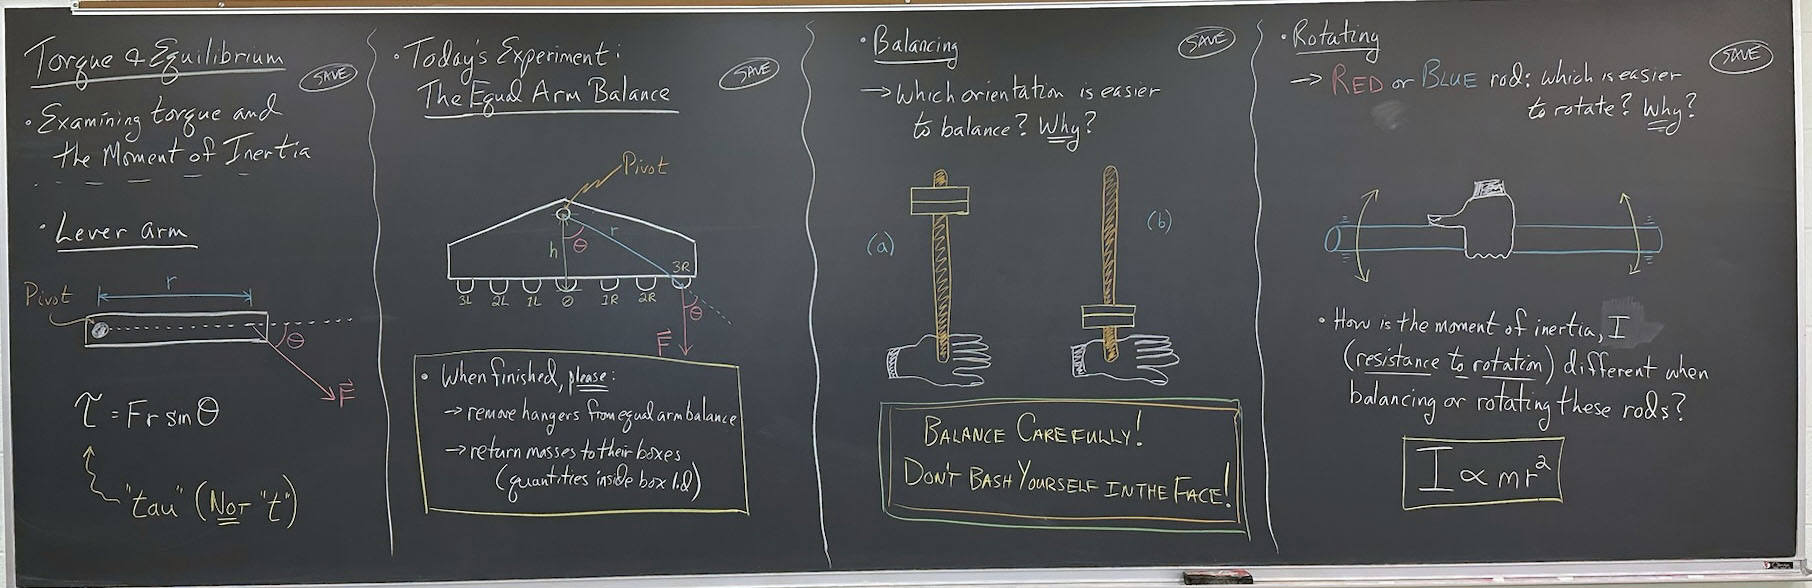 Torque & Equilibrium
SAVE
• Examining torque and
the Moment of Inertia
• Lever arm
Pivot
r
θ
F
τ = Fr sin θ
"tau" (NOT "t")
• Today's Experiment:
The Equal Arm Balance
SAVE
Pivot
h
θ
r
3R
3L 2L 1L 0 1R 2R
θ
F
• When finished, please:
→ remove hangers from equal arm balance
→ return masses to their boxes
(quantities inside box lid)
• Balancing
SAVE
→ Which orientation is easier
to balance? Why?
(a)
(b)
BALANCE CAREFULLY!
DON'T BASH YOURSELF IN THE FACE!
• Rotating
SAVE
→ RED or BLUE rod: which is easier
to rotate? Why?
• How is the moment of inertia, I
(resistance to rotation) different when
balancing or rotating these rods?
I ∝ mr²